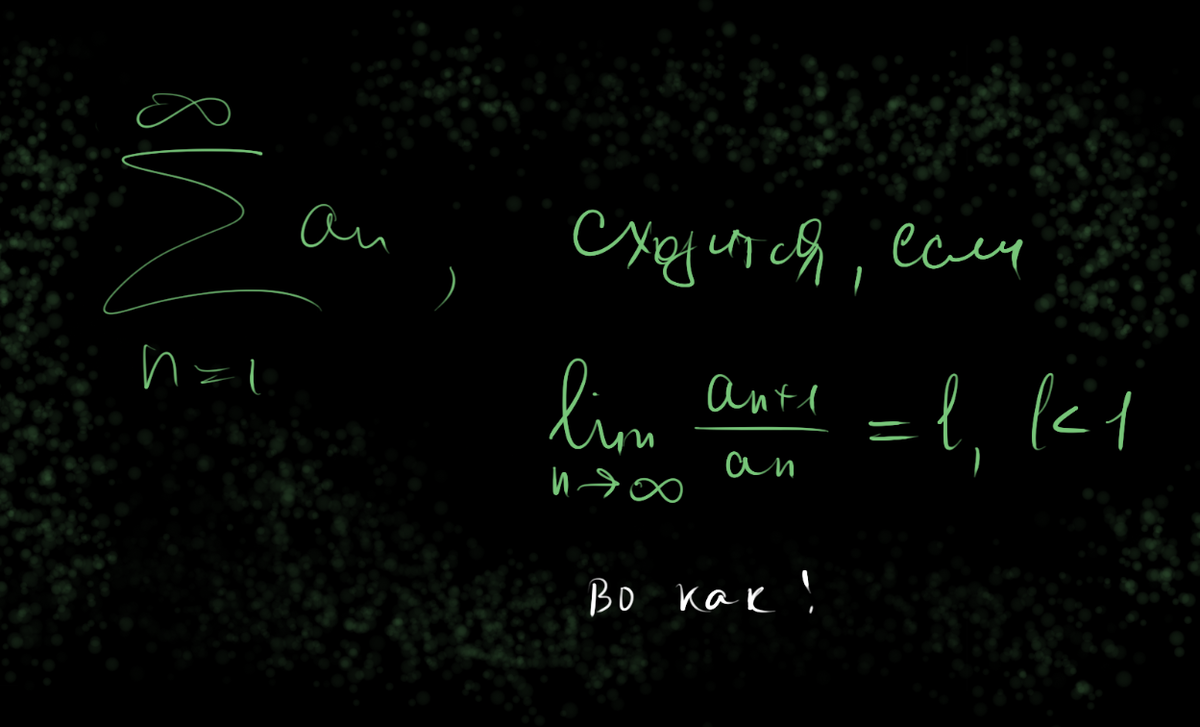 ∞
∑ an, сходится, если
n=1
lim an+1/an = l, l<1
n→∞
во как!